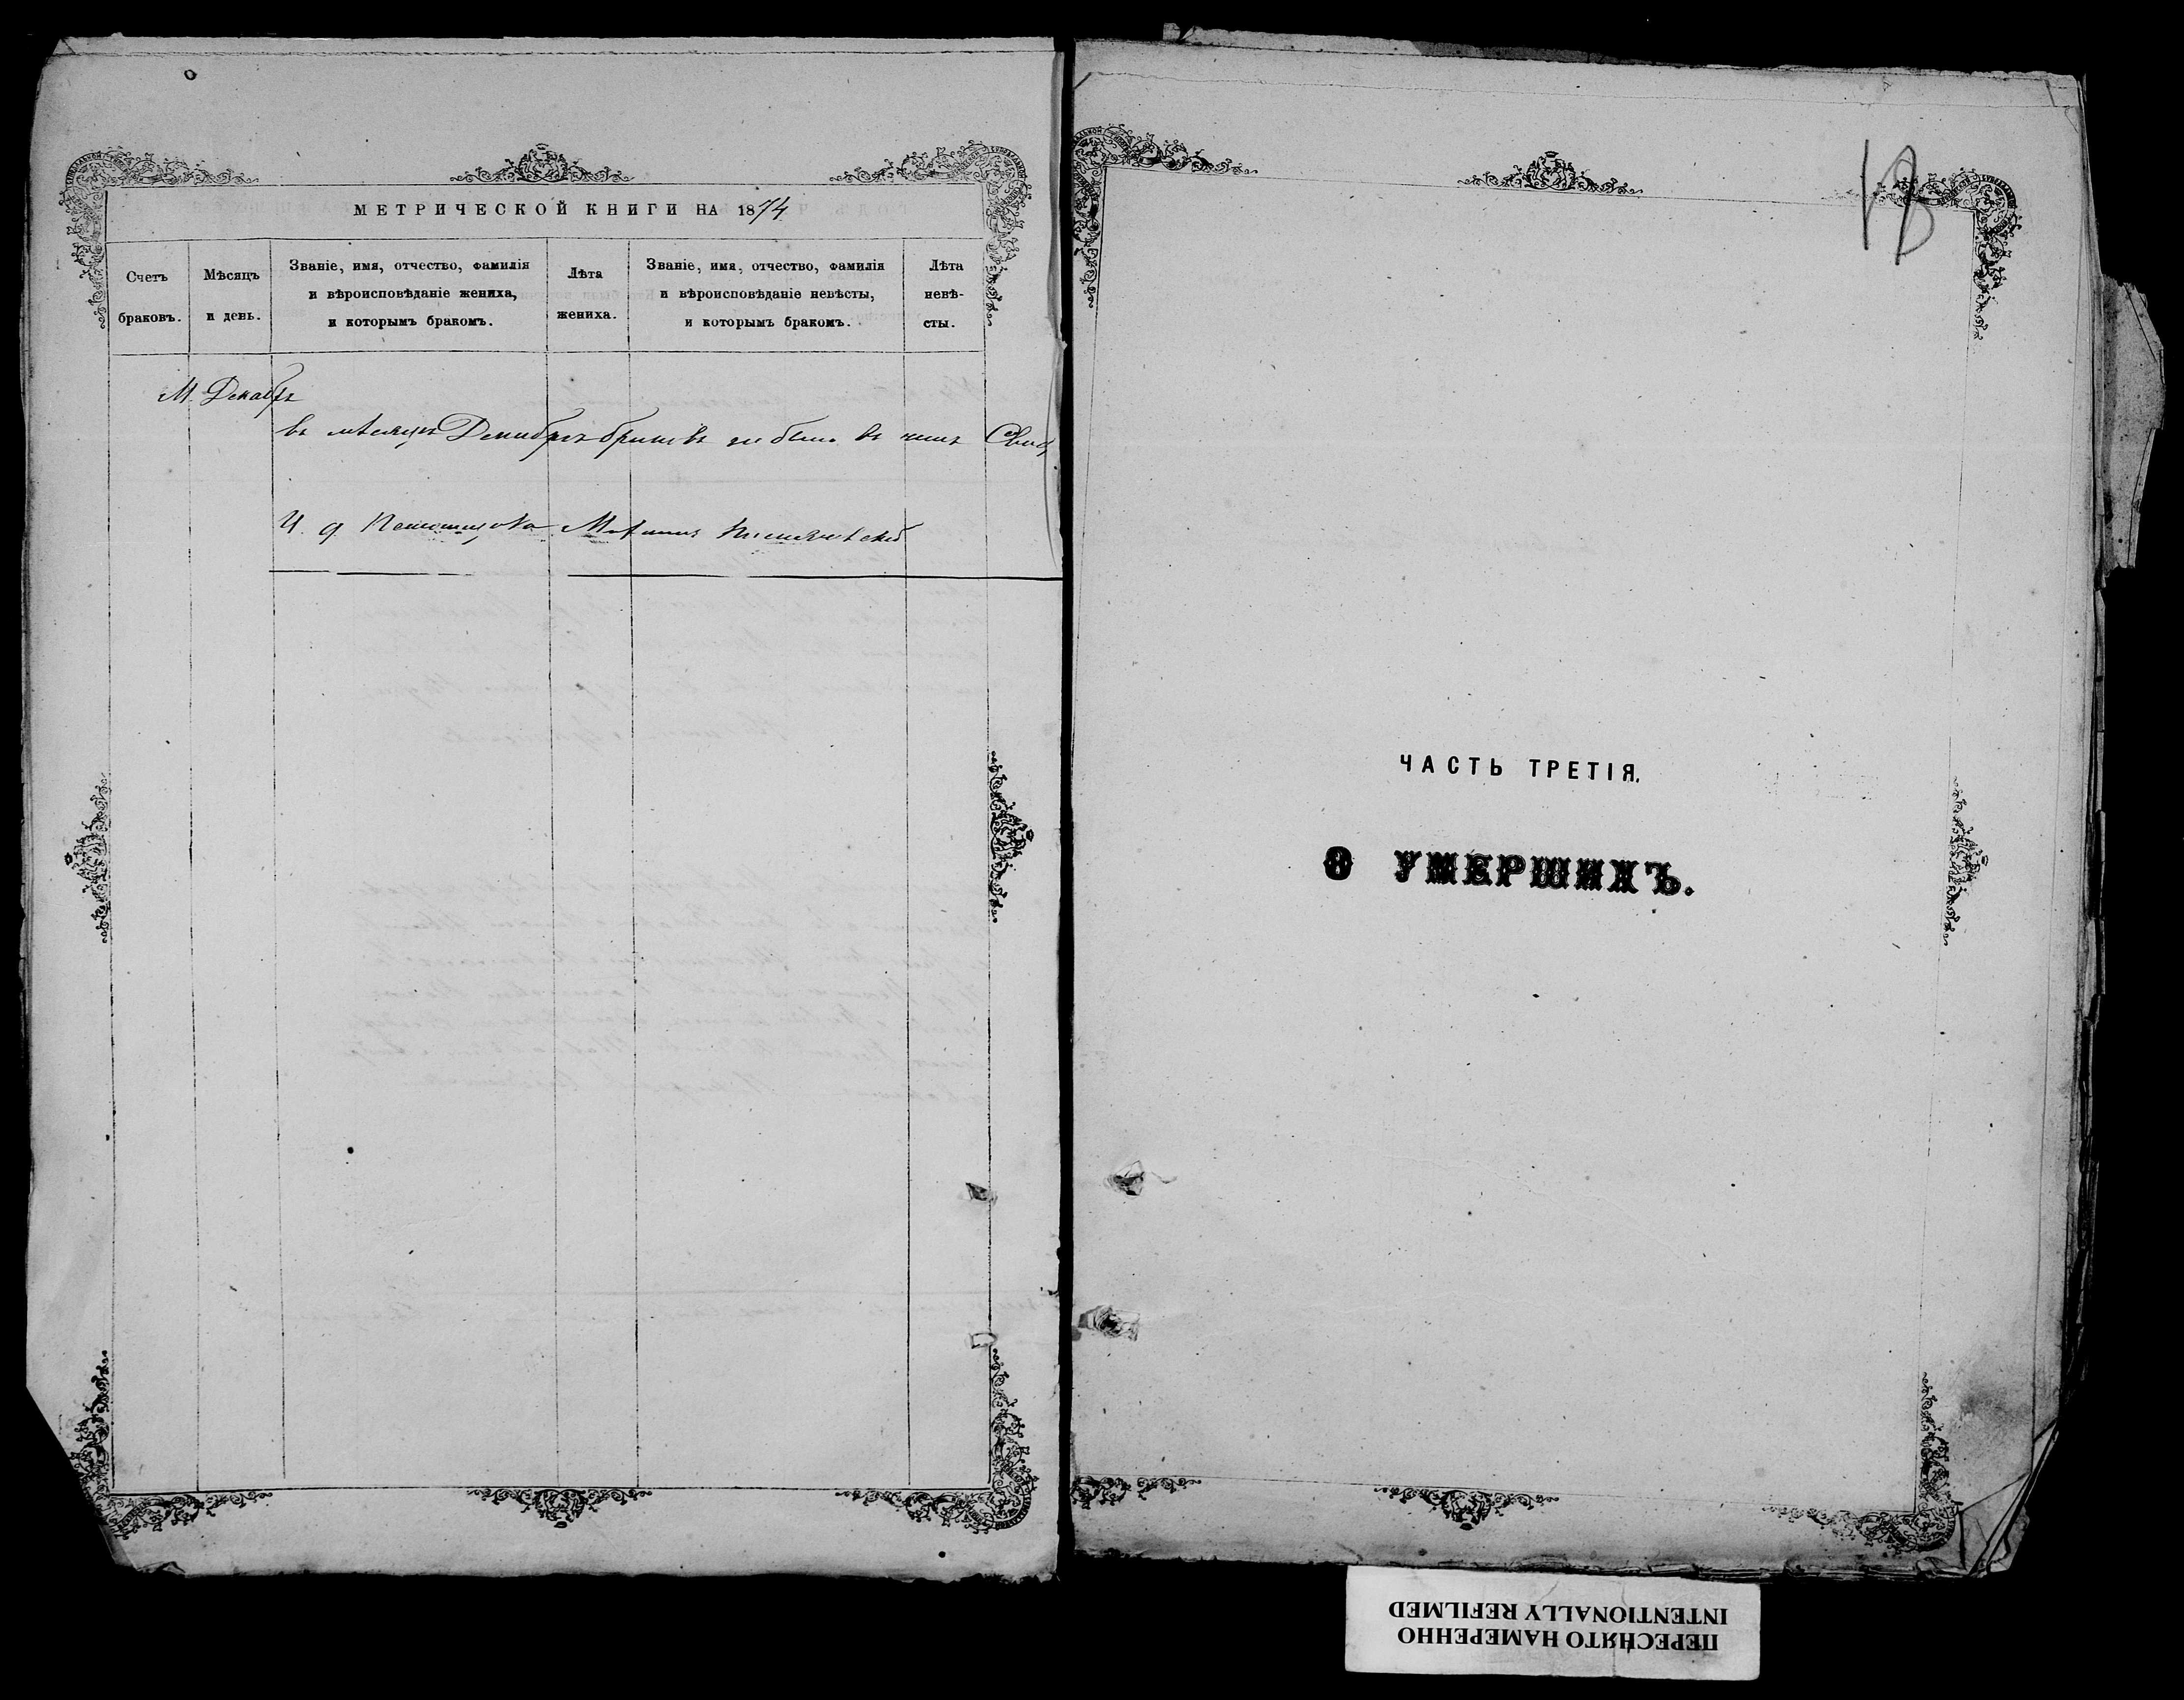 МЕТРИЧЕСКОЙ КНИГИ НА 1874
Счетъ браковъ.
Мѣсяцъ и день.
Званіе, имя, отчество, фамилія и вѣроисповѣданіе жениха, и которымъ бракомъ.
Лѣта жениха.
Званіе, имя, отчество, фамилія и вѣроисповѣданіе невѣсты, и которымъ бракомъ.
Лѣта невѣ-сты.
М. Декабрь
въ мѣсяцѣ Декабрѣ браковъ не было въ чемъ
И. д.
18
ЧАСТЬ ТРЕТІЯ.
О УМЕРШИХЪ.
ПЕРЕСНЯТО НАМЕРЕННО
INTENTIONALLY REFILMED